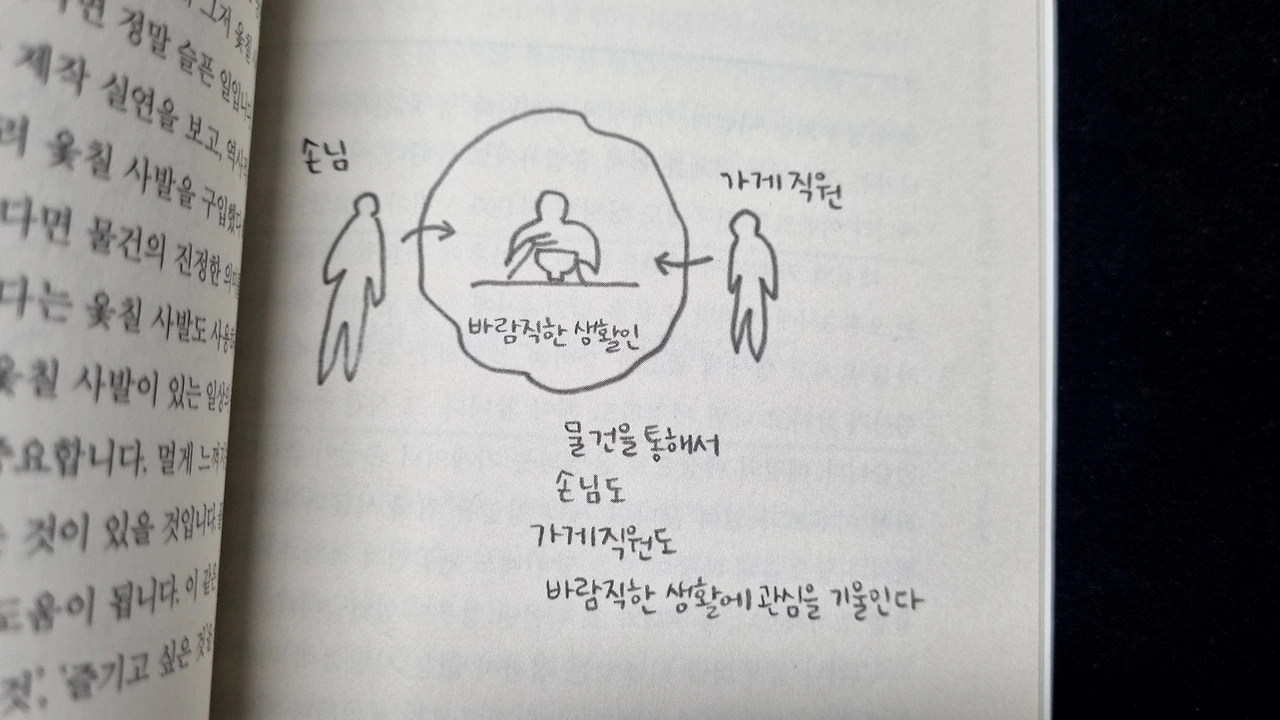 면 정말 슬픈 일입니다
제작 실연을 보고,
옻칠 사발을 구입했다
다면 물건의 진정한
다는 옻칠 사발도
칠 사발이 있는
중요합니다. 멀게
것이 있을 것입니다
도움이 됩니다. 이 같은
것', '즐기고 싶은 것을
손님
가게 직원
바람직한 생활인
물건을 통해서
손님도
가게 직원도
바람직한 생활에 관심을 기울인다